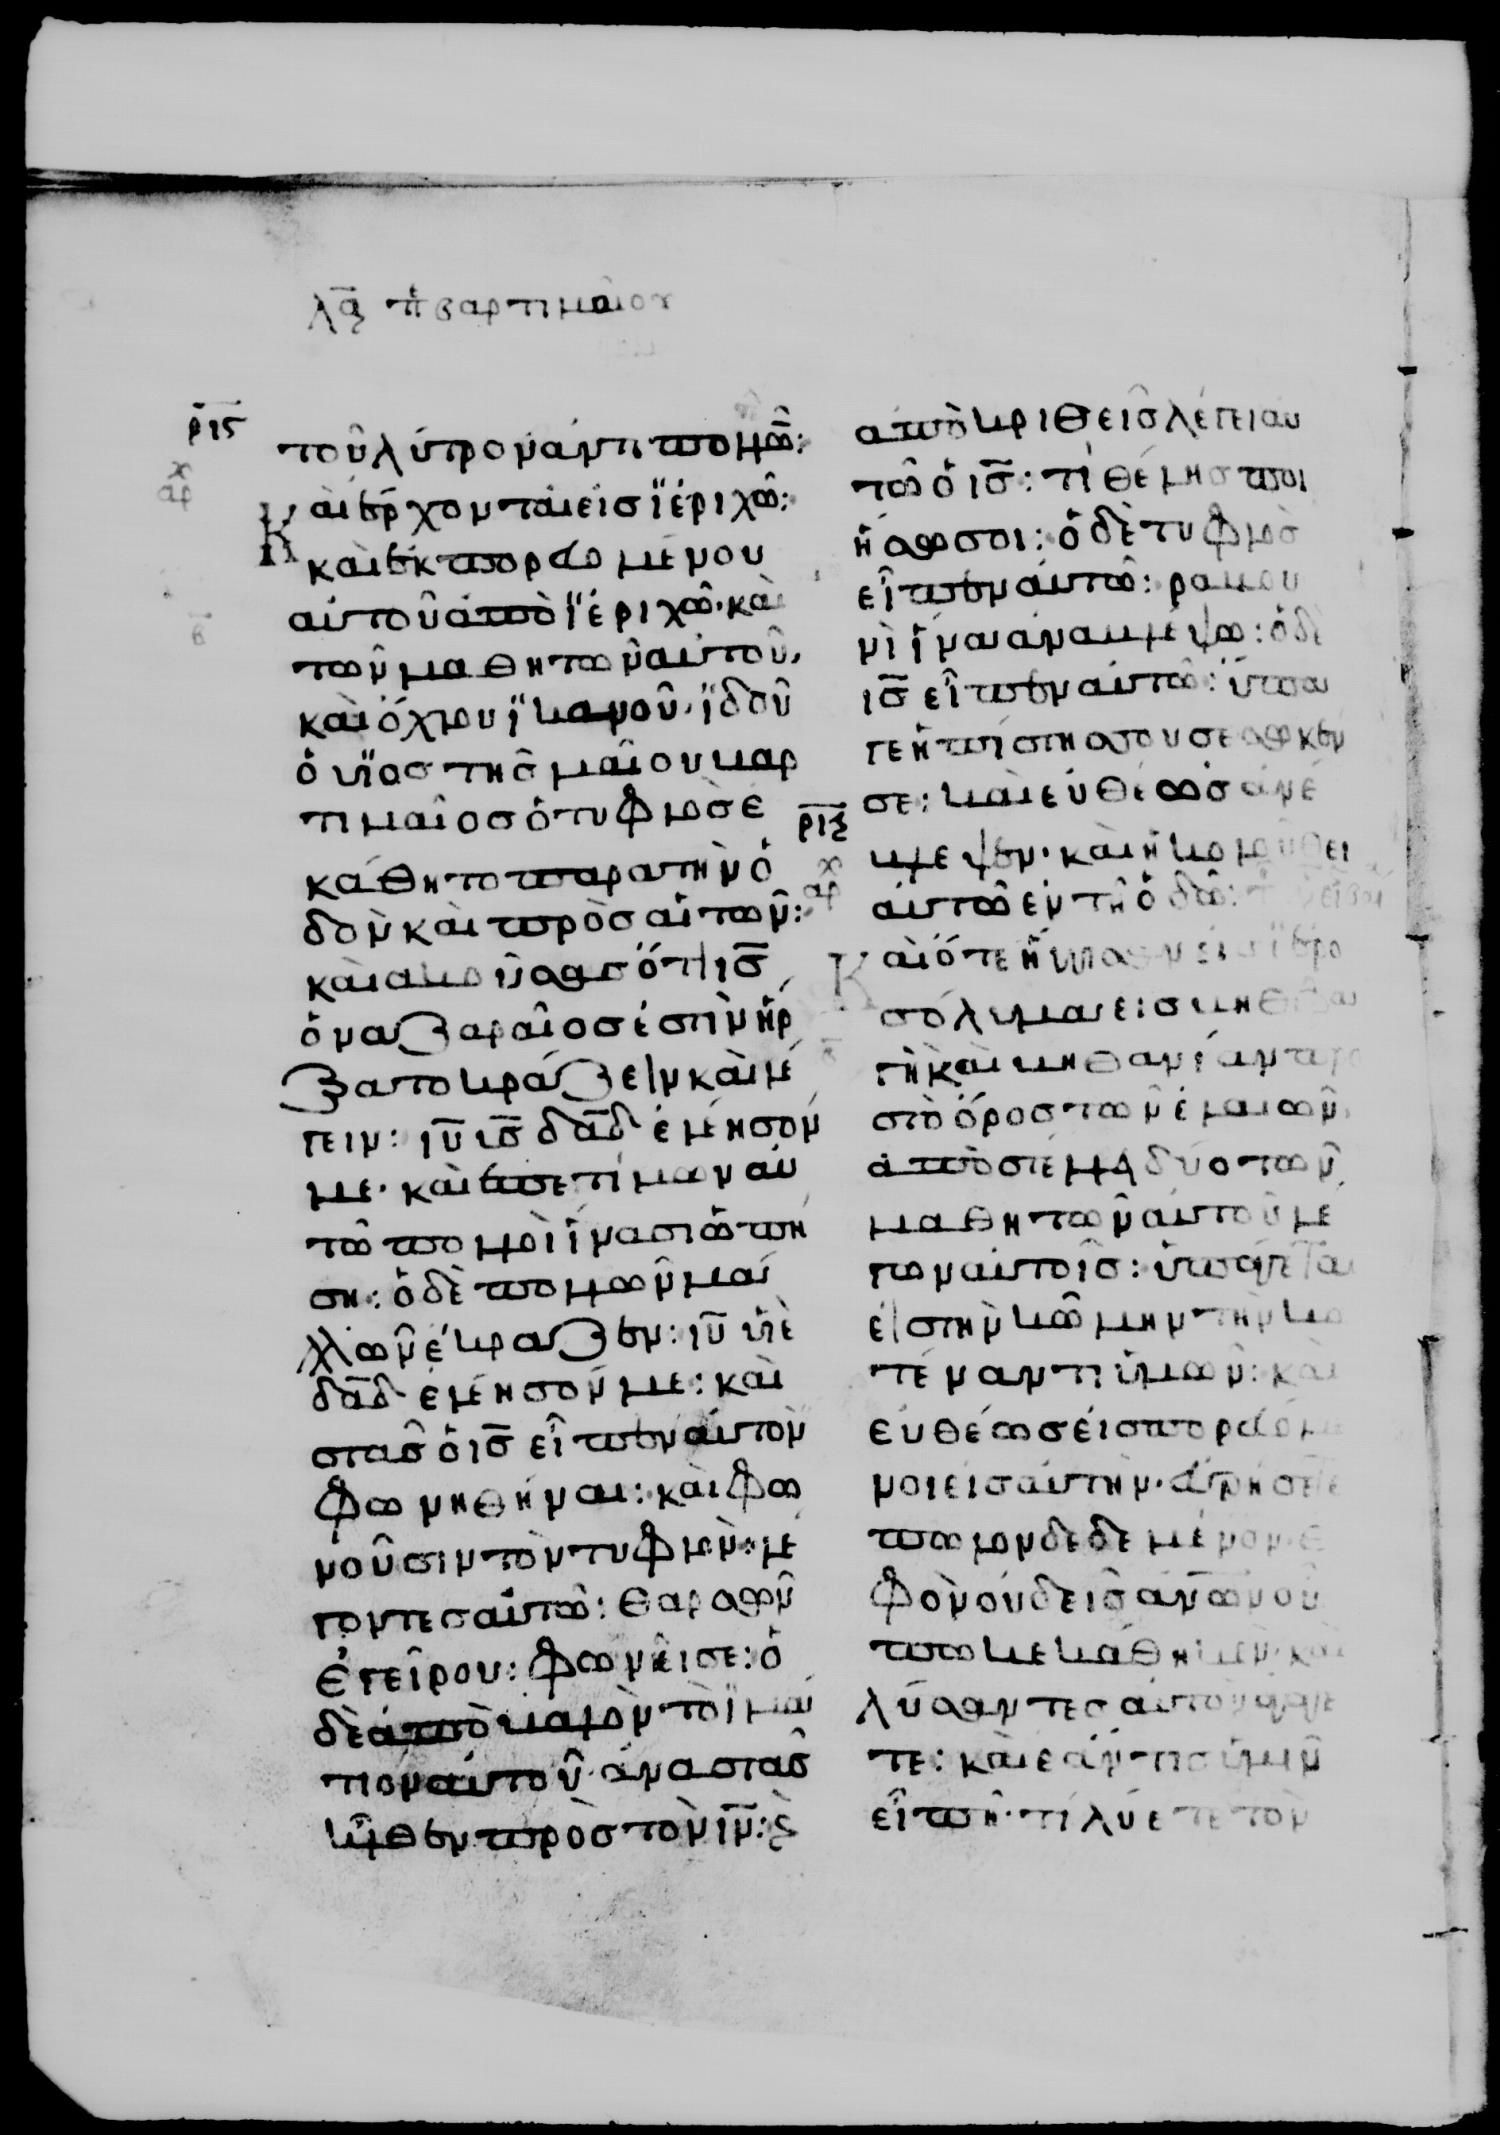 λα π βαρτιμαίου
ρις
τοῦ λύτρον ἀντι πολλῶν:
Καὶ ἔρχονται εἰς ϊέριχῶ:
καὶ ἐκπορευομένου
αὐτοῦ ἀπὸ ϊέριχῶ· καὶ
τῶν μαθητῶν αὐτοῦ,
καὶ ὄχλου ϊκανοῦ· ϊδοῦ
ὁ υἱὸς τῆς μαῖου βαρ
τιμαῖος ὁ τυφλὸς ἐ
κάθητο παρα τὴν ὁ
δὸν καὶ προσαἰτῶν:
καὶ ακούσας ὅτι ις
ὁ ναζαραῖος ἐστὶν ἤρ
ξατο κράζειν καὶ λέ
γειν: ιυ υς δαδ ἐλέησόν
με· καὶ ἐπετίμων αὐ
τῶ πολλοὶ ἵνα σιώπη
ση: ὁ δὲ πολλῶν μᾶ
λλὸν ἔκραζεν: ιυ υἱὲ
δαδ ἐλέησόν με: καὶ
στας ὁ ις εἶπεν αὐτὸν
φωνηθήναι: καὶ φω
νοῦσιν τὸν τυφλὸν· λέ
γοντες αὐτῶ: θαρσῶν
ἐγεῖρου: φωνεῖ σε: ὁ
δὲ ἀποβαλὸν τὸ ϊμά
τιον αὐτοῦ· ἀναστας
ἦλθεν πρὸς τὸν ιν: ϗ
ἀποκριθεὶς λέγει αυ
τῶ ὁ ις: τί θέλης ποι
ήσω σοι: ὁ δὲ τυφλὸς
εἶπεν αὐτῶ: ραβου
νὶ ἵνα ἀναβλέψω: ὁ δὲ
ις εἶπεν αὐτῶ: ὕπα
γε ἡ πίστη σου σέσωκεν
σε: καὶ εὐθέως ἀνέ
ριζ
βλεψεν· καὶ ἠκολούθει
αὐτῶ ἐν τῆ ὁδῶ:
Καὶ ὅτε ἤγγισαν εἰς ϊερο
σόλυμα εἰς βηθσφα
γὴ καὶ βηθανίαν προ
στὸ ὄρος τῶν ἐλαιῶν
ἀποστέλλη δύο τῶν
μαθητῶν αὐτοῦ λέ
γων αὐτοῖς: ὑπάγετα
εἰς τὴν κώμην τὴν κα
τέναντι ὑμῶν: καὶ
εὐθέως εἰσπορευόμε
νοι εἰς αὐτὴν· εὑρήσετε
πῶλον δεδεμένον· ἐ
φ ὃν οὐδεὶς ανων οὔ
πω κεκάθηκεν· καὶ
λύσαντες αὐτὸν ἀγάγε
τε: καὶ ἐάν τις ὑμῖν
εἶπη· τί λύετε τὸν